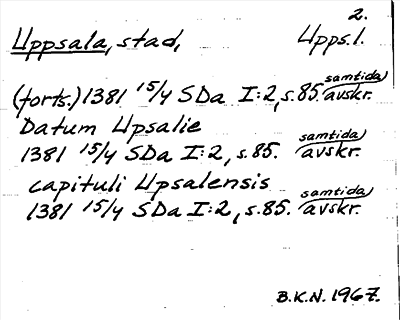 2.
Uppsala, stad, Upps.l.
(forts.) 1381 15/4 SDa I:2, s.85. samtida avskr.
Datum Upsalie
1381 15/4 SDa I:2, s.85. samtida avskr.
capituli Upsalensis
1381 15/4 SDa I:2, s.85. samtida avskr.
B.K.N. 1967.